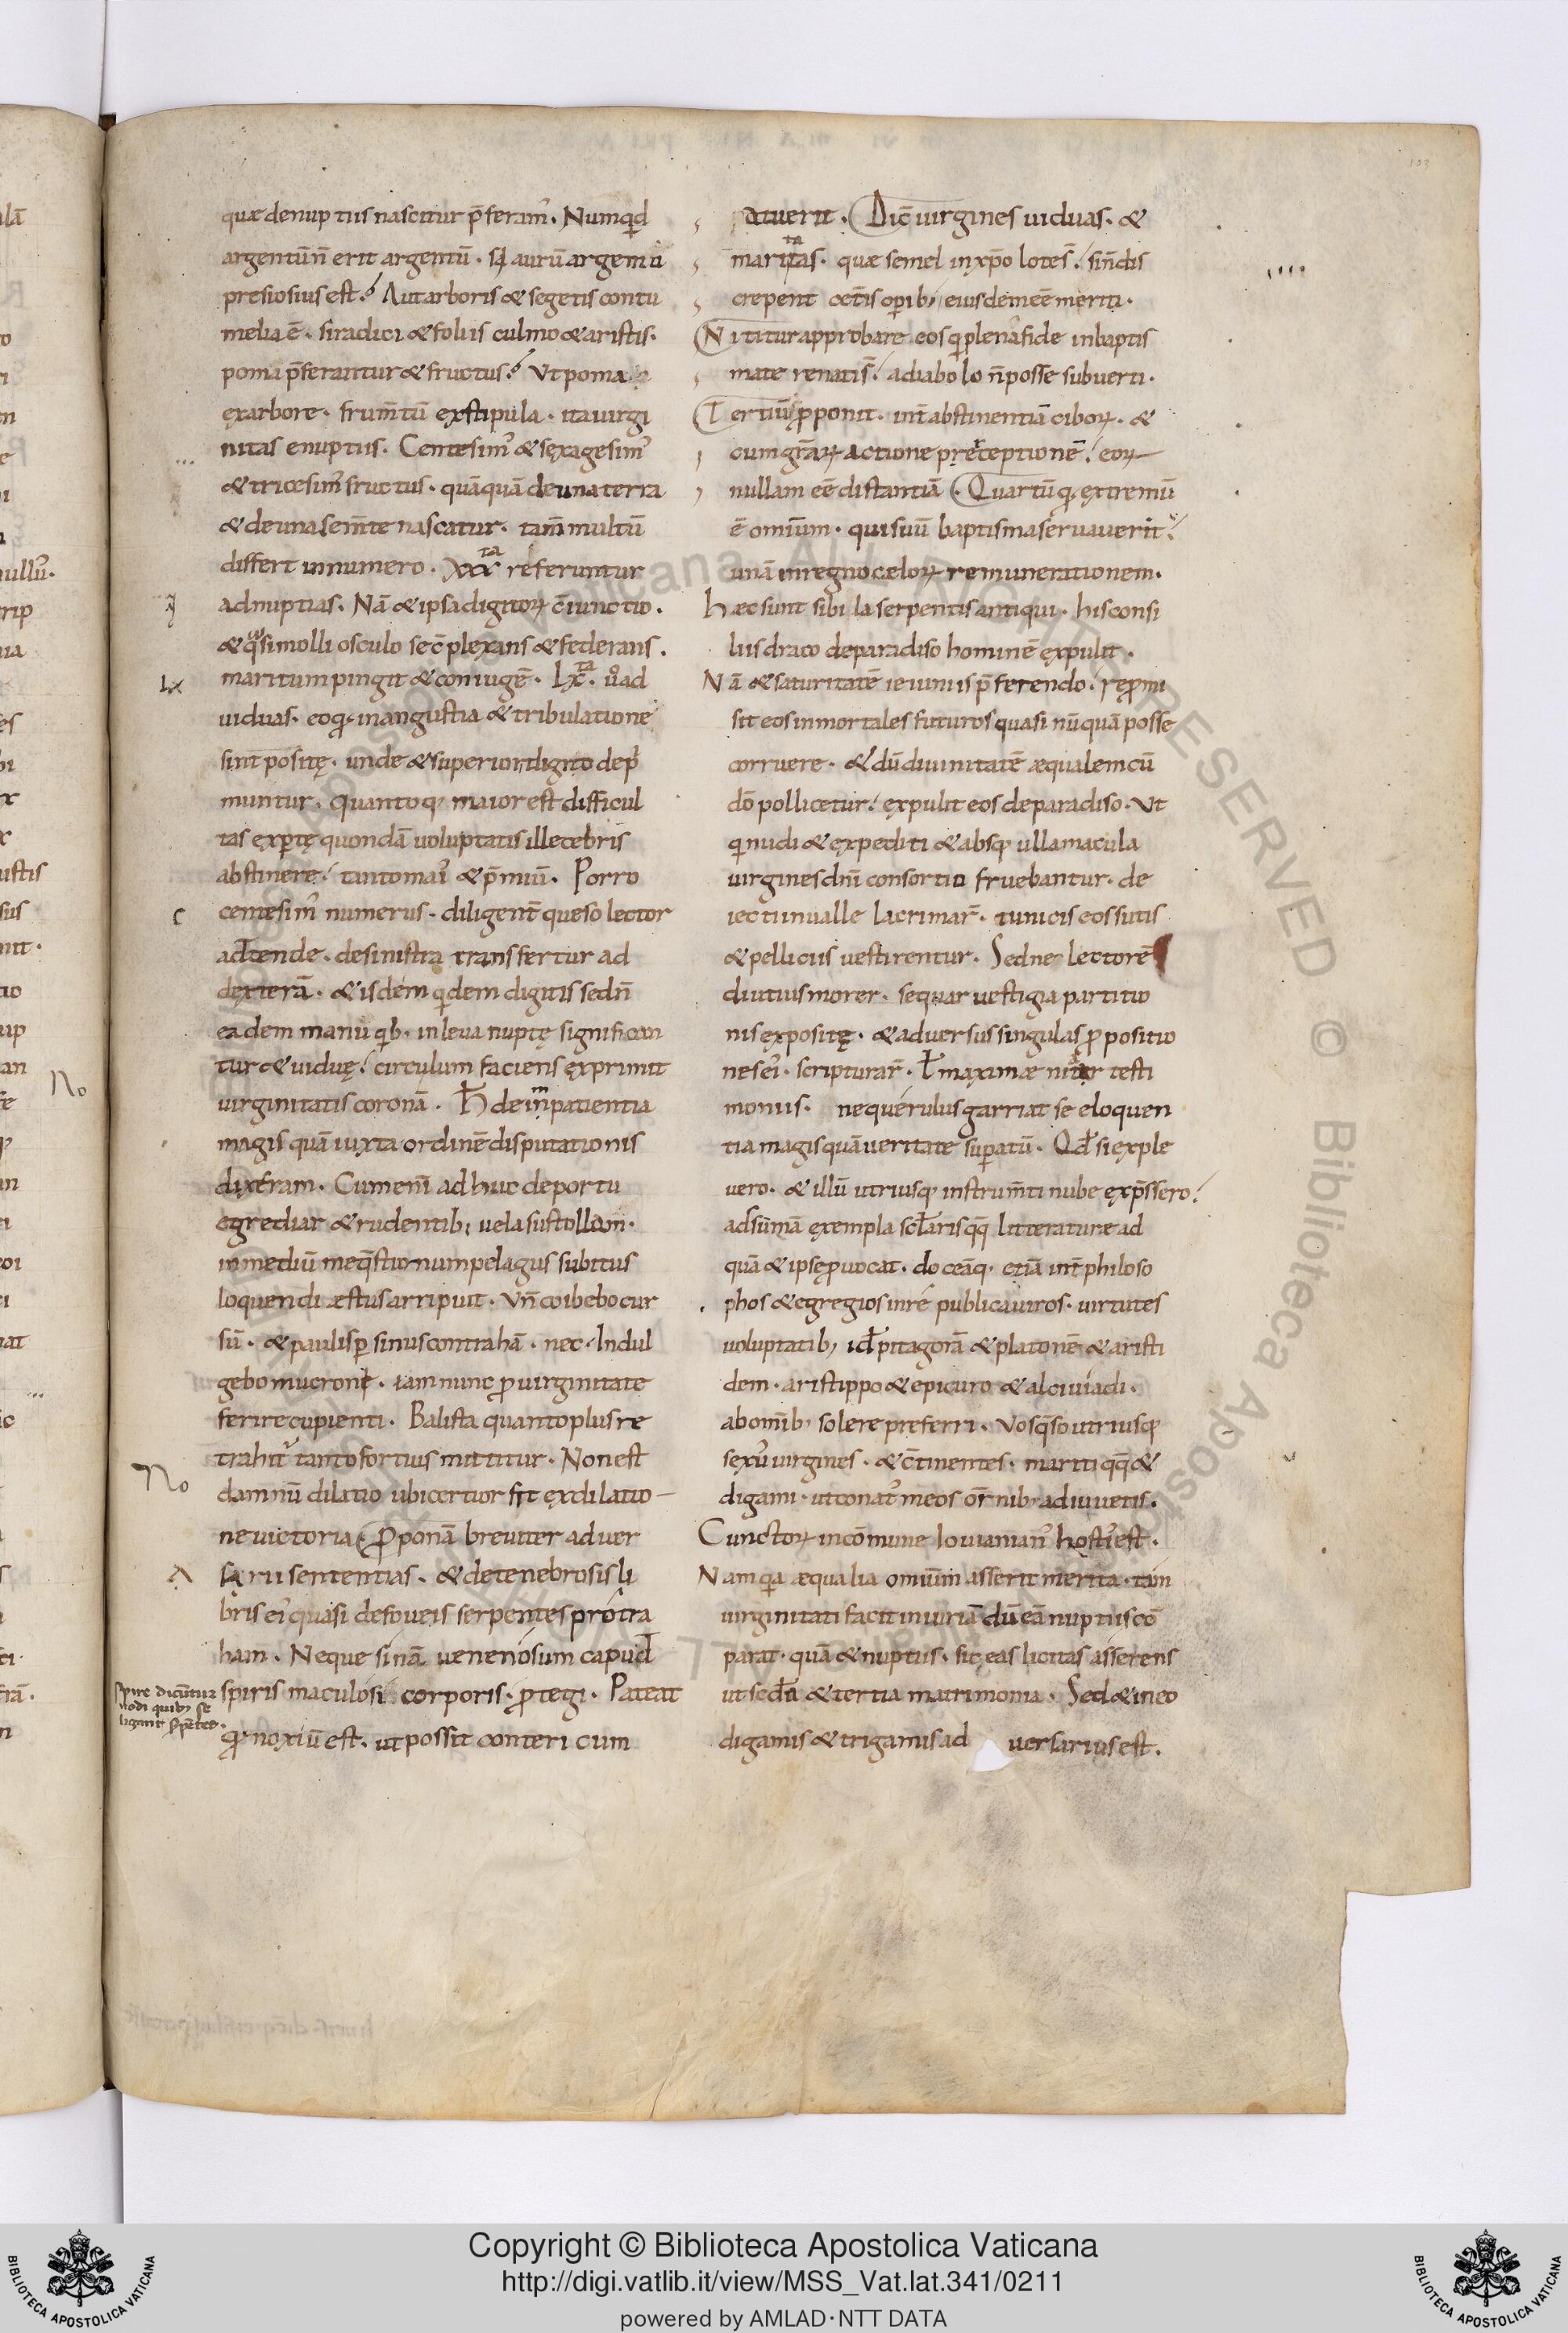 quæ denuptiis nascitur p̄feram᷒. Numqͥd
argentū n̄ erit argentū. si aurū argento
presiosius est? Aut arboris & segetis contu
melia ē. si radici & foliis culmo & aristis.
poma p̄ferantur & fructus? Ut poma
exarbore. frum̄tū exstipula. ita uirgi
nitas enuptiis. Centesim᷒ & sexagesim᷒
& tricesim᷒ fructus. quāquā de una terra
& de una sem̄te nascatur. tam̄ multū
differt in numero. xxx ta referuntur
ad nuptias. Nā & ipsa digitoꝝ c̄iunctio.
& qͣsi molli osculo se c̄plexans & federans.
maritum pingit & coniugē. Lx ta. u͛o ad
uiduas. eo qꝫ in angustia & tribulatione
sint positę. unde & superiori digito dep͛
muntur. Quanto qꝫ maior est difficul
tas exꝑtę quondā uoluptatis illecebris
abstinere. tanto mai᷒ & p̄miū. Porro
centesim᷒ numerus. diligent̄ queso lector
adtende. de sinistra transfertur ad
dexterā. & isdem qͥdem digitis sed n̄
eadem manu qͥb. in leua nuptę significan
tur & uiduę. circulum faciens exprimit
uirginitatis coronā. H̄ de inpatientia
magis quā iuxta ordinē disputationis
dixeram. Cum enī adhuc deportu
egrediar & rudentibꝫ uela sustollam.
in mediū me q̄stionum pelagus subitus
loquendi æstus arripuit. Un̄ coibebo cur
sū. & paulisꝑ sinus contrahā. nec Indul
gebo mucroni. iam nunc ꝓ uirginitate
ferire cupienti. Balista quanto plus re
trahit᷒ tanto fortius mittitur. Non est
damnū dilatio ubi certior fit exdilatio
ne uictoria. Ꝓponā breuiter aduer
sarii sententias. & de tenebrosis li
bris ei᷒ quasi defoueis serpentes protra
ham. Neque sinā uenenosum capud
spiris maculosi corporis. ꝓtegi. Pateat
qͦ noxiū est. ut possit conteri cum
Spire dicūtur
nodi quibꝫ se
ligant serp̄tes.
No
No
lx
c
patuerit. Dic̄ uirgines uiduas. &
maritatas. quæ semel in xp̄o lotę s̄. si n̄ dis
crepent cet̄is oꝑibꝫ eiusdem eē meriti.
Nititur approbare eos qͥ plena fide in baptis
mate renati s̄. a diabolo n̄ posse subuerti.
Tertiū ꝓponit. int̄ abstinentiā ciboꝝ. &
cum gr̄aꝝ actione preceptionē. eoꝝ
nullam eē distantiā. Quartū qꝫ extremū
ē omiūm. qui suū baptisma seruauerit.
unā in regno cæloꝝ remunerationem.
Hæc sunt sibila serpentis antiqui. his consi
liis draco de paradiso hominē expulit.
Nā & saturitatē ieiuniis p̄ferendo. reꝓmi
sit eos inmortales futuros quasi nūquā posse
corruere. & dū diuinitatē æqualem cū
dō pollicetur. expulit eos de paradiso. Ut
qͥ nudi & expediti & absqꝫ ulla macula
uirgines dn̄i consortio fruebantur. de
iecti in ualle lacrimar̄. tunicis eos sutis
& pelliciis uestirentur. Sed ne lectorē
diutius morer. sequar uestigia partitio
nis expositę. & aduersus singulas ꝓpositio
nes ei᷒. scripturar̄. uł maximæ nitar testi
moniis. ne querulus garriat se eloquen
tia magis quā ueritate suꝑatū. Qd̄ si exple
uero. & illū utriusqꝫ instrum̄ti nube exp̄ssero.
adsumā exempla sclaris qq̄ litteraturæ ad
quā & ipse ꝓuocat. doceāqꝫ etiā int̄ philoso
phos & egregios in re publica uiros. uirtutes
uoluptatibꝫ id ē pitagorā & platonē & aristi
dem. aristippo & epicuro & alciuiadi.
ab omībꝫ solere preferri. Uos q̄so utriusqꝫ
sexu᷒ uirgines. & c̄tinentes. mariti qq̄ &
digami. ut conat᷒ meos or̄nibꝫ adiuuetis.
Cunctoꝝ in cōmune Iouianian᷒ hostis est.
Nam qͥa æqualia omiūm asserit merita. tam
uirginitati facit iniuriā dū eā nuptiis cō
parat. quā & nuptiis. sic eas licitas asserens
ut sed̄a & tertia matrimonia. Sed & in eo
digamis & trigamis ad uersarius est.
Copyright © Biblioteca Apostolica Vaticana
http://digi.vatlib.it/view/MSS_Vat.lat.341/0211
powered by AMLAD·NTT DATA
BIBLIOTECA APOSTOLICA VATICANA
BIBLIOTECA APOSTOLICA VATICANA